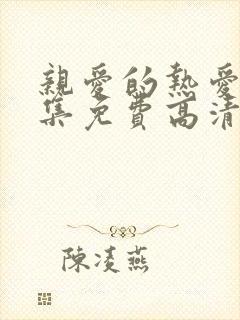 親愛的熱愛
集免費高清
陳凌燕